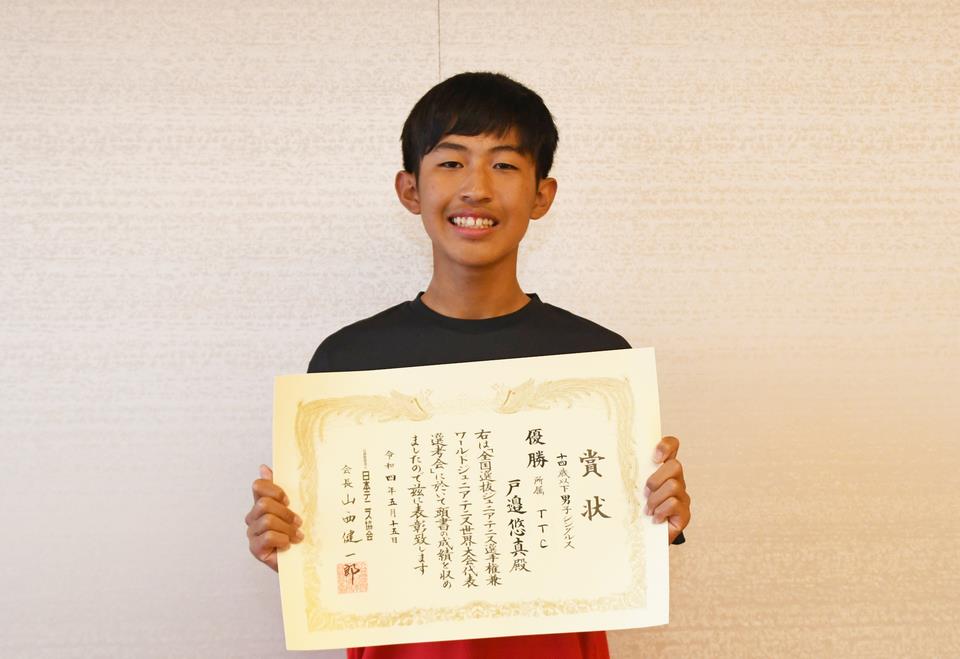 賞状
十四歳以下男子シングルス
優勝 所属 TTC
戸邉悠真殿
右は「全国選抜ジュニアテニス選手権兼
ワールドジュニアテニス世界大会代表
選考会」に於いて頭書の成績を収め
ましたので茲に表彰致します
令和四年五月十五日
日本テニス協会
会長 山西健一郎